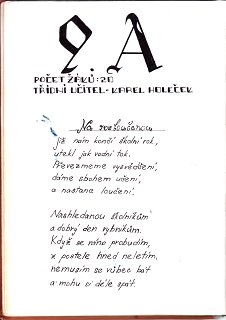 9. A
POČET ŽÁKŮ: 20
TŘÍDNÍ UČITEL - KAREL HOLEČEK
Na rozloučenou
Již nám končí školní rok,
utekl jak vodní tok.
Převezmeme vysvědčení,
dáme sbohem učení,
a nastane loučení.
Nashledanou školníkům
a dobrý den rybníkům.
Když se ráno probudím,
z postele hned neletím,
nemusím se vůbec bát
a mohu si déle spát.